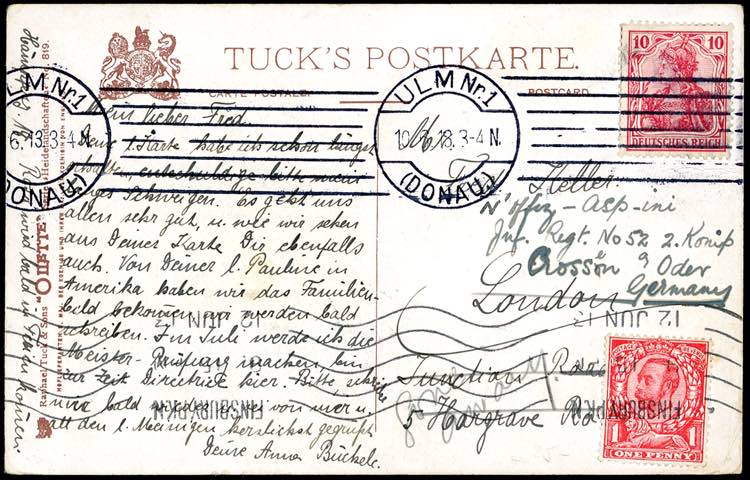 TUCK'S POSTKARTE.
CARTE POSTALE
POSTCARD
10 10
DEUTSCHES REICH
ULM Nr.1
6.13.3-4 N
(DONAU)
ULM Nr.1
10.6.13.3-4 N.
(DONAU)
Mein lieber Fred.
Deine l. Karte habe ich schon längst
erhalten, entschuldige bitte mein
Schweigen. Es geht uns
allen sehr gut, u. wie wir sehen
aus Deiner Karte Dir ebenfalls
auch. Von Deiner l. Pauline in
Amerika haben wir das Familien-
bild bekommen wir werden bald
schreiben. Im Juli werde ich die
Meister-Prüfung machen, bin
zur Zeit Directrice hier. Bitte, schreibe
mir bald von mir u.
den l. Meinigen herzlichst gegrüßt
Deine Anna Bückele.
Keller
Inf. Regt. No 52 2. Komp
Crossen a Oder
Germany
London
Junction Road
5 Hargrave Rd
gone away
12 JUN 13
FINSBURY PK.N
12 JUN 13
FINSBURY PK.N
ONE PENNY
1 1
Raphael Tuck & Sons "OILETTE" Heidelandschaften No. 819.